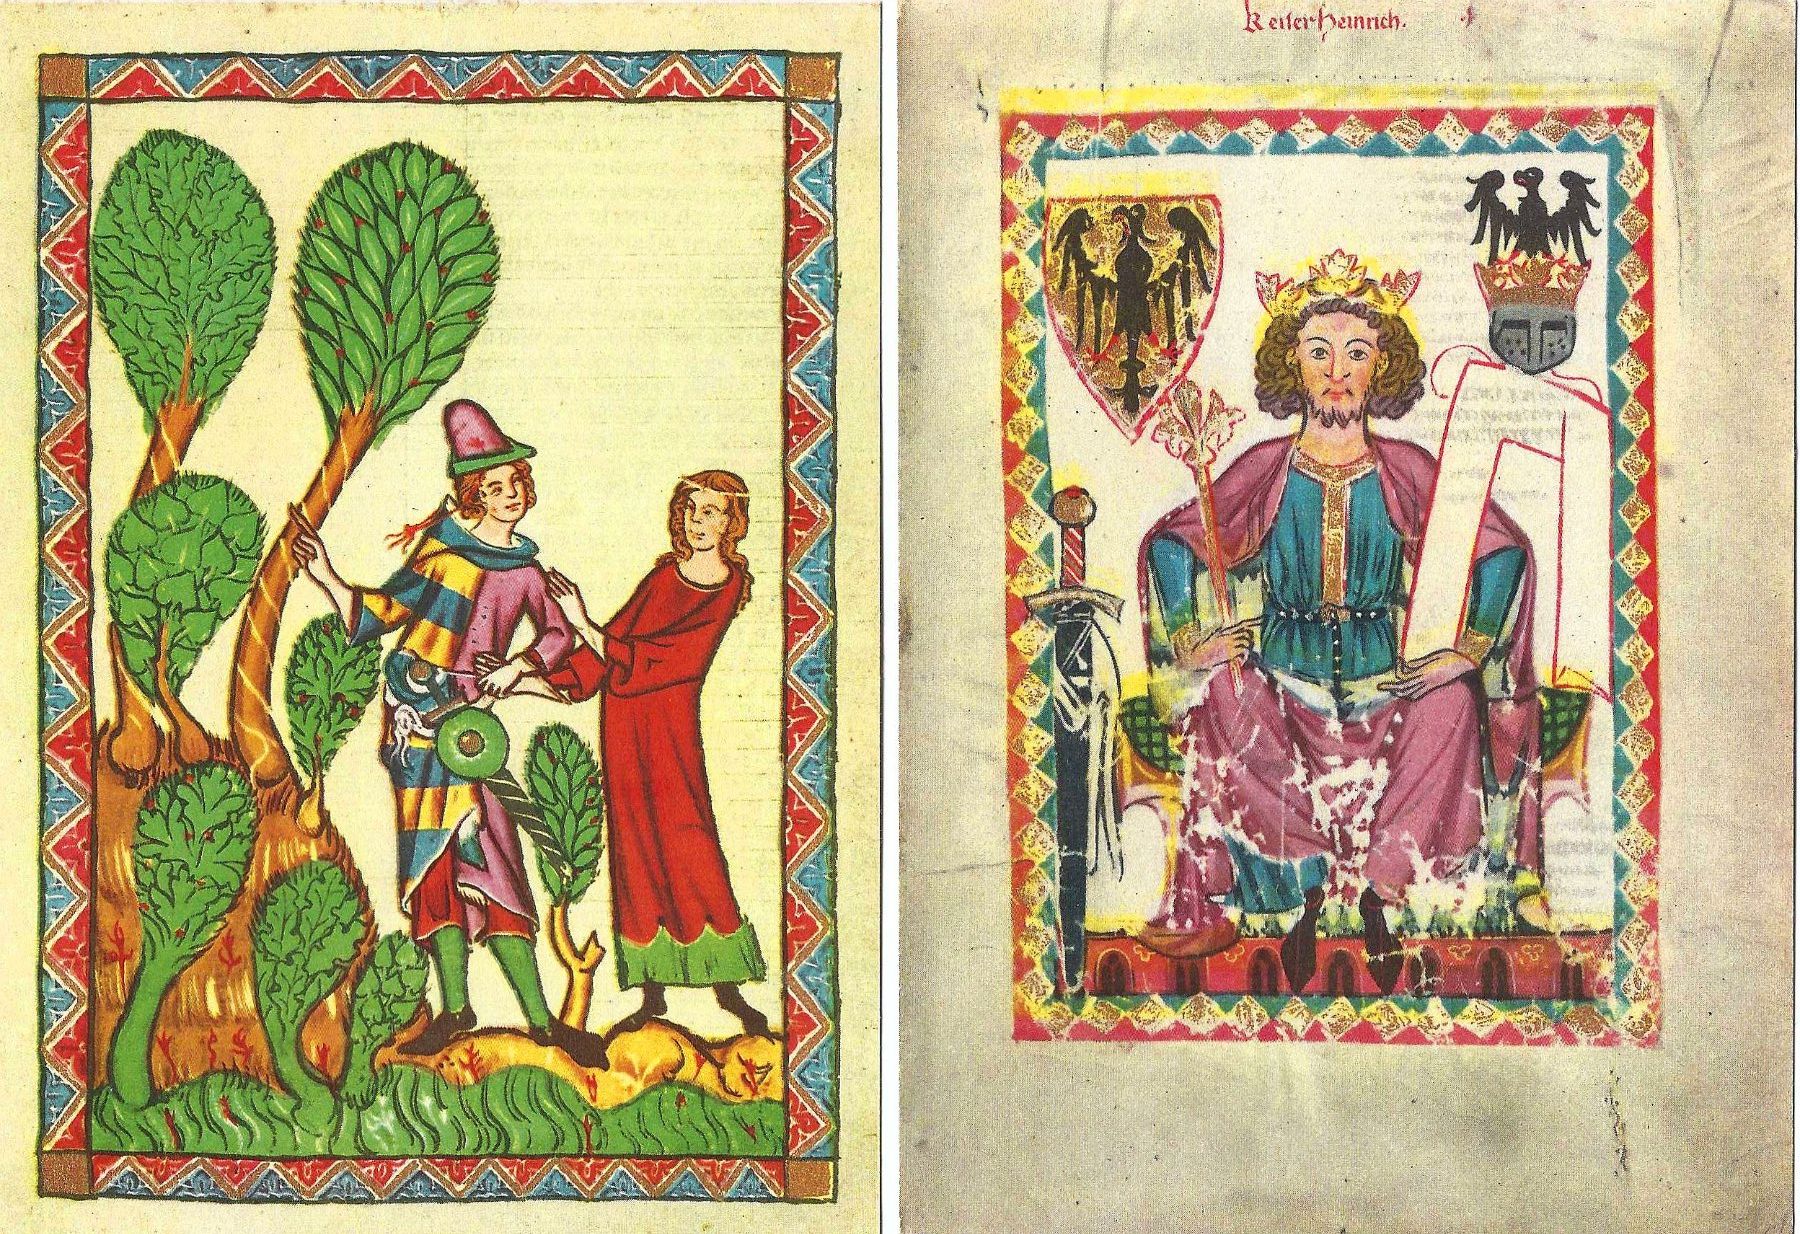 Keiser Heinrich.